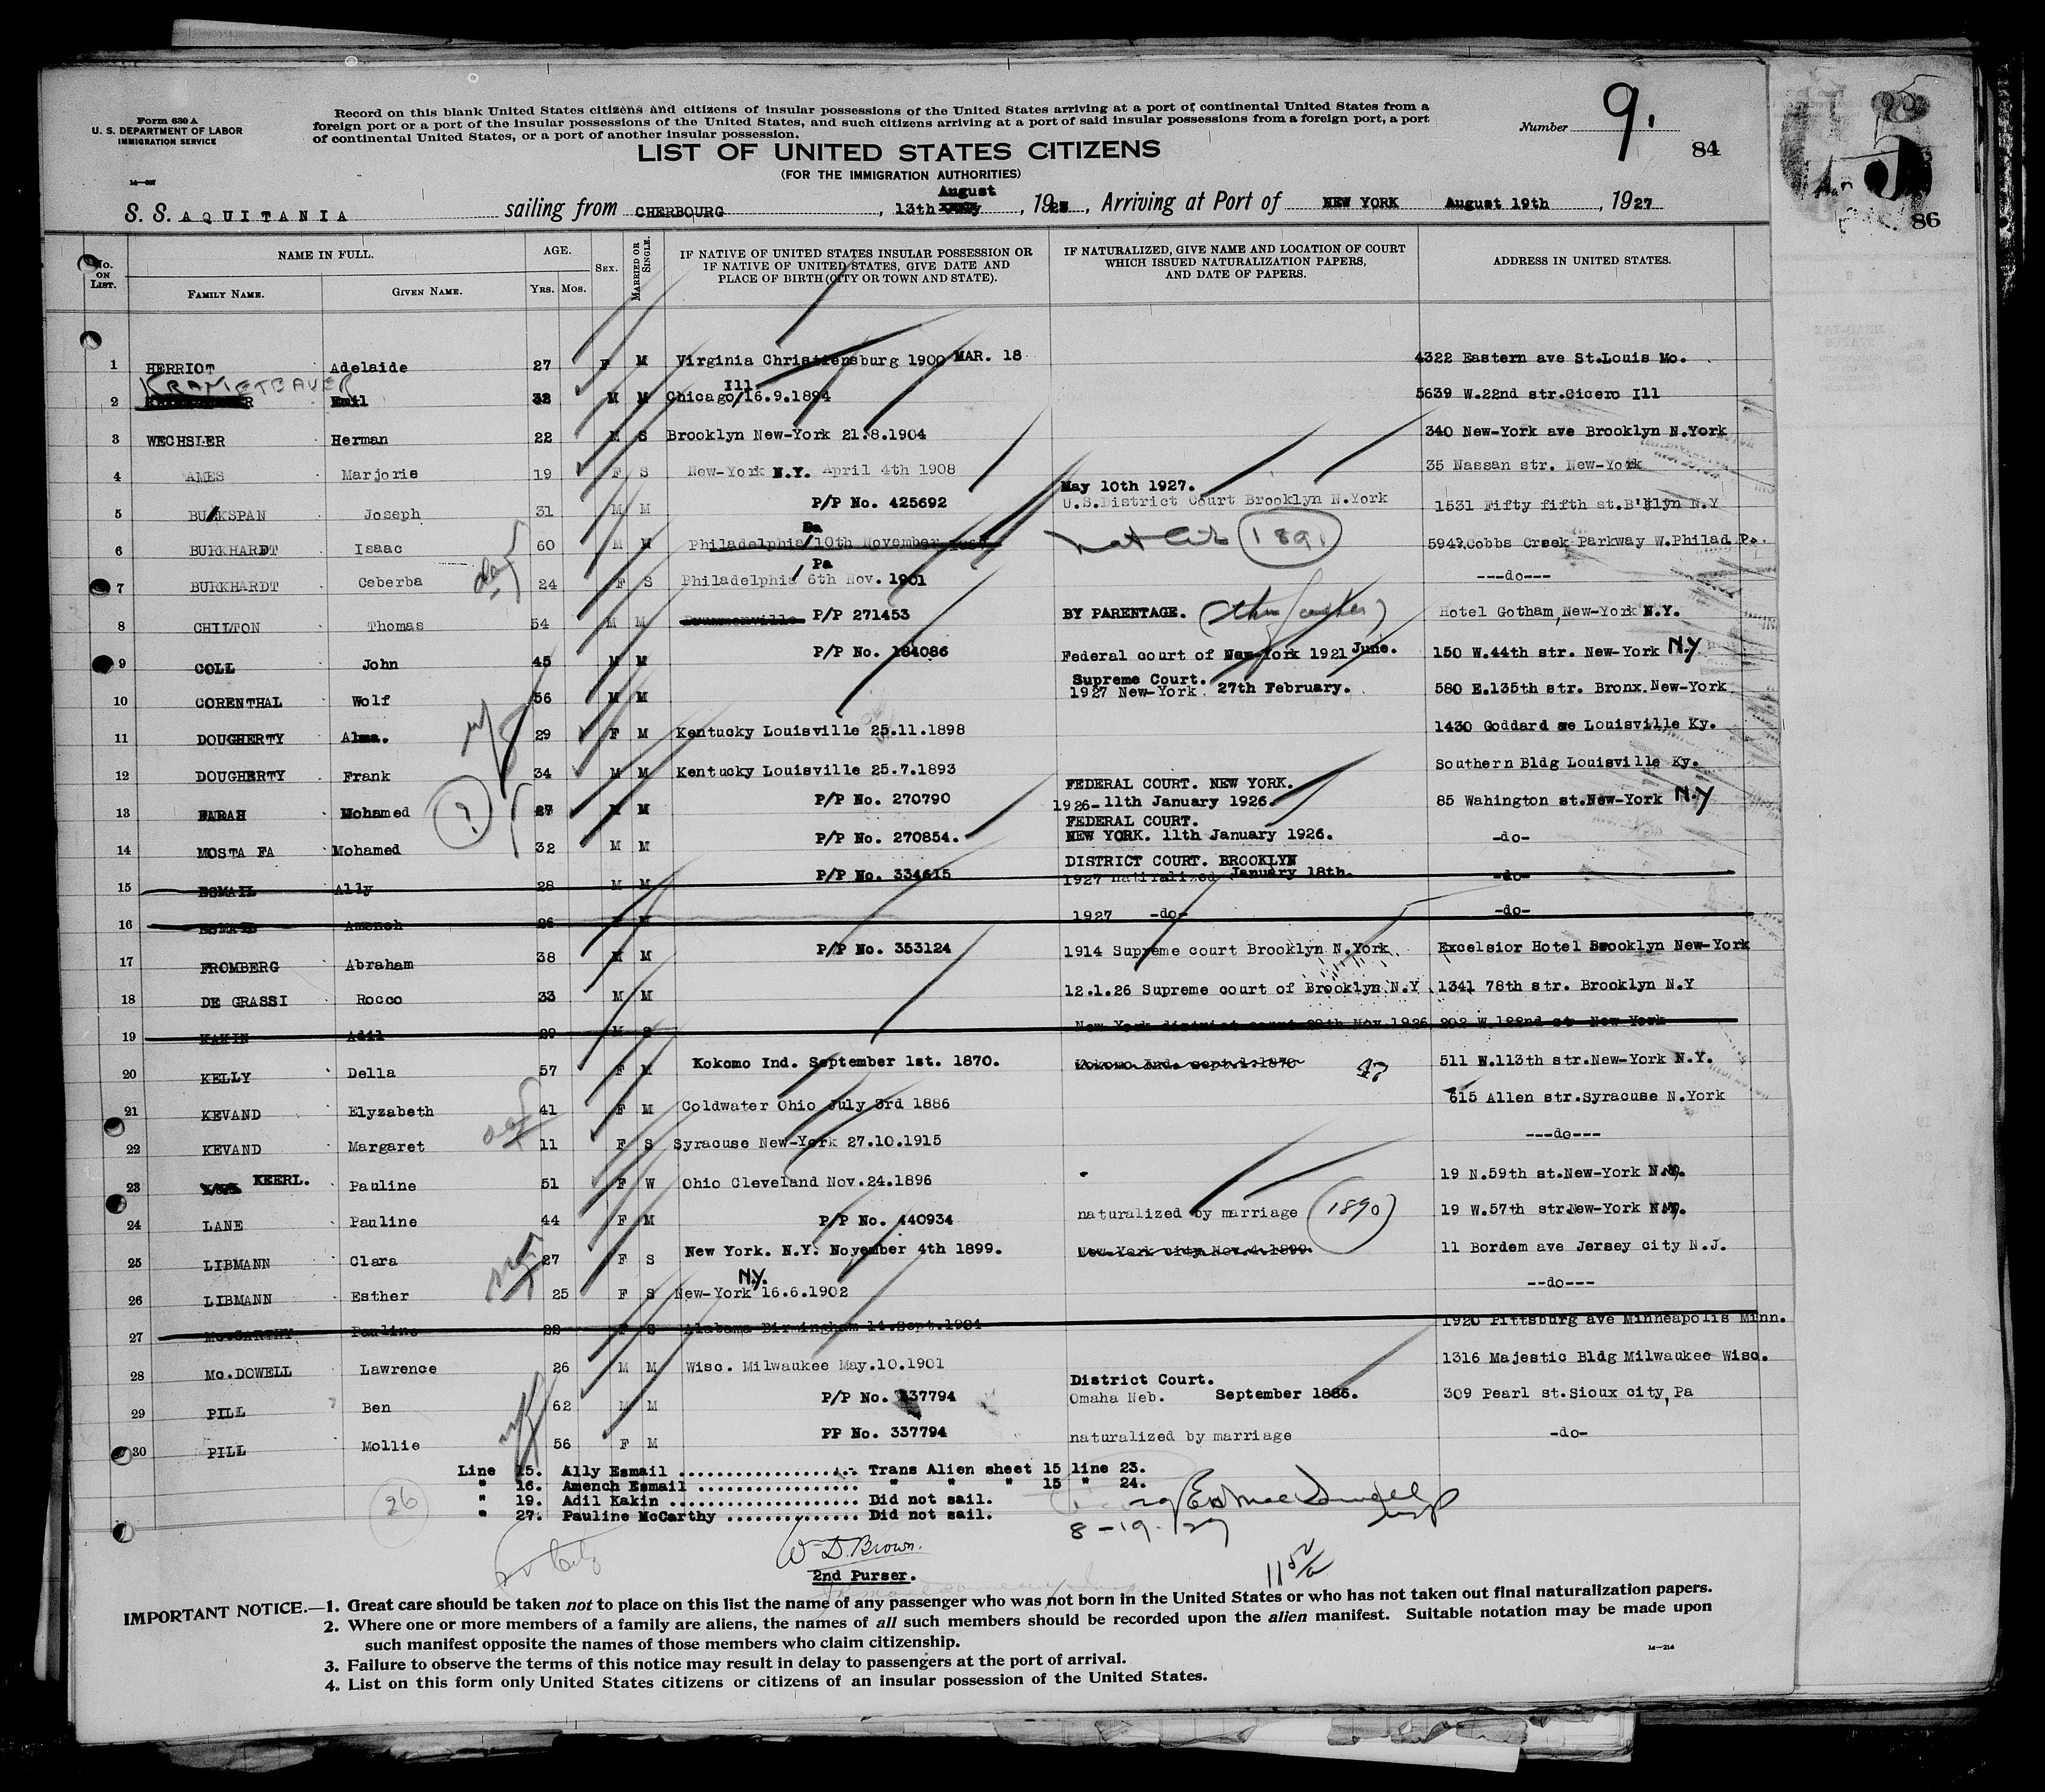 Form 630 A
U. S. DEPARTMENT OF LABOR
IMMIGRATION SERVICE
Record on this blank United States citizens and citizens of insular possessions of the United States arriving at a port of continental United States from a
foreign port or a port of the insular possessions of the United States, and such citizens arriving at a port of said insular possessions from a foreign port, a port
of continental United States, or a port of another insular possession.
Number 9.
84
86
LIST OF UNITED STATES CITIZENS
(FOR THE IMMIGRATION AUTHORITIES)
August
S. S. AQUITANIA sailing from CHERBOURG, 13th, 19, Arriving at Port of NEW YORK August 19th, 1927
No. ON LIST. NAME IN FULL. AGE. SEX. MARRIED OR SINGLE. IF NATIVE OF UNITED STATES INSULAR POSSESSION OR IF NATIVE OF UNITED STATES, GIVE DATE AND PLACE OF BIRTH (CITY OR TOWN AND STATE). IF NATURALIZED, GIVE NAME AND LOCATION OF COURT WHICH ISSUED NATURALIZATION PAPERS, AND DATE OF PAPERS. ADDRESS IN UNITED STATES.
FAMILY NAME. GIVEN NAME. YRS. MOS.
1 HERRIOT Adelaide 27 F M Virginia Christiensburg 1900 MAR. 18 4322 Eastern ave St.Louis Mo.
KRAMETBAUER Ill.
2 Emil 32 M M Chicago/16.9.1894 5639 W.22nd str.Cicero Ill
3 WECHSLER Herman 22 M S Brooklyn New-York 21.8.1904 340 New-York ave Brooklyn N.York
4 AMES Marjorie 19 F S New-York N.Y. April 4th 1908 35 Nassan str. New-York
May 10th 1927.
5 BUKSPAN Joseph 31 M M P/P No. 425692 U.S.District Court Brooklyn N.York 1531 Fifty fifth st.B'klyn N.Y
Pa
6 BURKHARDT Isaac 60 M M Philadelphia/10th November 1891 5942 Cobbs Creek Parkway W.Philad Pa.
Pa
7 BURKHARDT Ceberba 24 F S Philadelphia/ 6th Nov. 1901 ---do---
8 CHILTON Thomas 54 M M Drummonville P/P 271453 BY PARENTAGE. Hotel Gotham,New-York N.Y.
9 COLL John 45 M M P/P No. 184086 Federal court of New-York 1921 June. 150 W.44th str. New-York N.Y
Supreme Court.
10 CORENTHAL Wolf 56 M M 1927 New-York. 27th February. 580 E.135th str. Bronx.New-York
11 DOUGHERTY Alma. 29 F M Kentucky Louisville 25.11.1898 1430 Goddard ae Louisville Ky.
12 DOUGHERTY Frank 34 M M Kentucky Louisville 25.7.1893 Southern Bldg Louisville Ky.
FEDERAL COURT. NEW YORK.
13 FARAH Mohamed 27 M M P/P No. 270790 1926-11th January 1926. 85 Wahington st.New-York N.Y
FEDERAL COURT.
14 MOSTA FA Mohamed 32 M M P/P No. 270854. NEW YORK. 11th January 1926. -do-
DISTRICT COURT. BROOKLYN
15 ESMAIL Ally 28 M M P/P No. 334615 1927 natiralized January 18th. -do-
16 ESMAIL Amench 26 F M 1927 -do- -do-
17 FROMBERG Abraham 38 M M P/P No. 353124 1914 Supreme court Brooklyn N.York Excelsior Hotel Brooklyn New-York
18 DE GRASSI Rocco 33 M M 12.1.26 Supreme court of Brooklyn.N.Y 1341 78th str. Brooklyn N.Y
19 KAKIN Adil 29 M S New York district court 29th Nov.1926 202 W.122nd st New York
20 KELLY Della 57 F M Kokomo Ind. September 1st. 1870. Kokomo Ind. sept.1.1870 511 W.113th str.New-York N.Y.
21 KEVAND Elyzabeth 41 F M Coldwater Ohio July 3rd 1886 615 Allen str.Syracuse N.York
22 KEVAND Margaret 11 F S Syracuse New-York 27.10.1915 ---do---
23 KEERL. Pauline 51 F W Ohio Cleveland Nov.24.1896 19 N.59th st.New-York N.Y.
24 LANE Pauline 44 F M P/P No. 440934 naturalized by marriage 1890 19 W.57th str.New-York N.Y.
25 LIBMANN Clara 27 F S New York. N.Y. November 4th 1899. New-York city Nov.4.1899. 11 Bordem ave Jersey city N.J.
N.Y.
26 LIBMANN Esther 25 F S New-York 16.6.1902 --do---
27 Mc.CARTHY Pauline F S Alabama Birmingham 14.Sept. 1920 Pittsburg ave Minneapolis Minn.
28 Mc.DOWELL Lawrence 26 M M Wisc. Milwaukee May.10.1901 1316 Majestic Bldg Milwaukee Wisc.
District Court.
29 PILL Ben 62 M M P/P No. 337794 Omaha Neb. September 1886. 309 Pearl st.Sioux city,Pa
30 PILL Mollie 56 F M PP No. 337794 naturalized by marriage -do-
Line 15. Ally Esmail .................. Trans Alien sheet 15 line 23.
" 16. Amench Esmail ................. " " " 15 " 24.
" 19. Adil Kakin .................... Did not sail.
" 27. Pauline McCarthy .............. Did not sail.
26
8-19-27
W D. Brown.
2nd Purser.
IMPORTANT NOTICE.—1. Great care should be taken not to place on this list the name of any passenger who was not born in the United States or who has not taken out final naturalization papers.
2. Where one or more members of a family are aliens, the names of all such members should be recorded upon the alien manifest. Suitable notation may be made upon
such manifest opposite the names of those members who claim citizenship.
3. Failure to observe the terms of this notice may result in delay to passengers at the port of arrival.
4. List on this form only United States citizens or citizens of an insular possession of the United States.
14—214